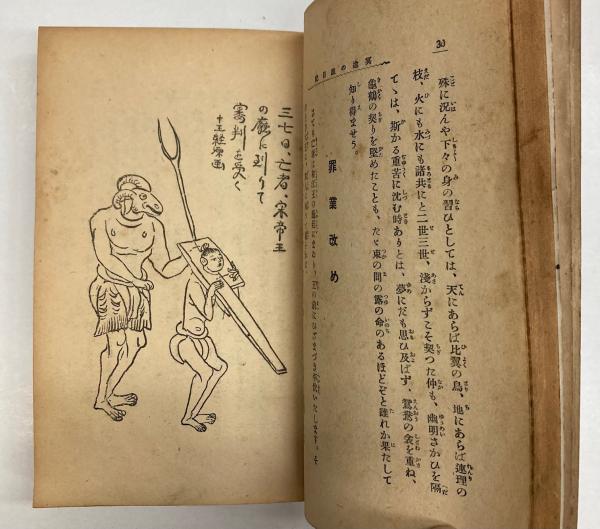 30
冥途の旅日記
殊に況んや下々の身の習ひとしては、天にあらば比翼の鳥、地にあらば連理の
枝、火にも水にも諸共にと二世三世、淺からずこそ契つた仲も、幽明さかひを隔
てゝは、斯かる重苦に沈む時ありとは、夢にだも思ひ及ばず、鴛鴦の衾を重ね、
龜鶴の契りを堅めたことも、たゞ束の間の露の命のあるほどぞと誰れか果たして
知り得ませう。
罪業改め
三七日、亡者、宋帝王
の廳に到りて
審判を受く
十王經原画